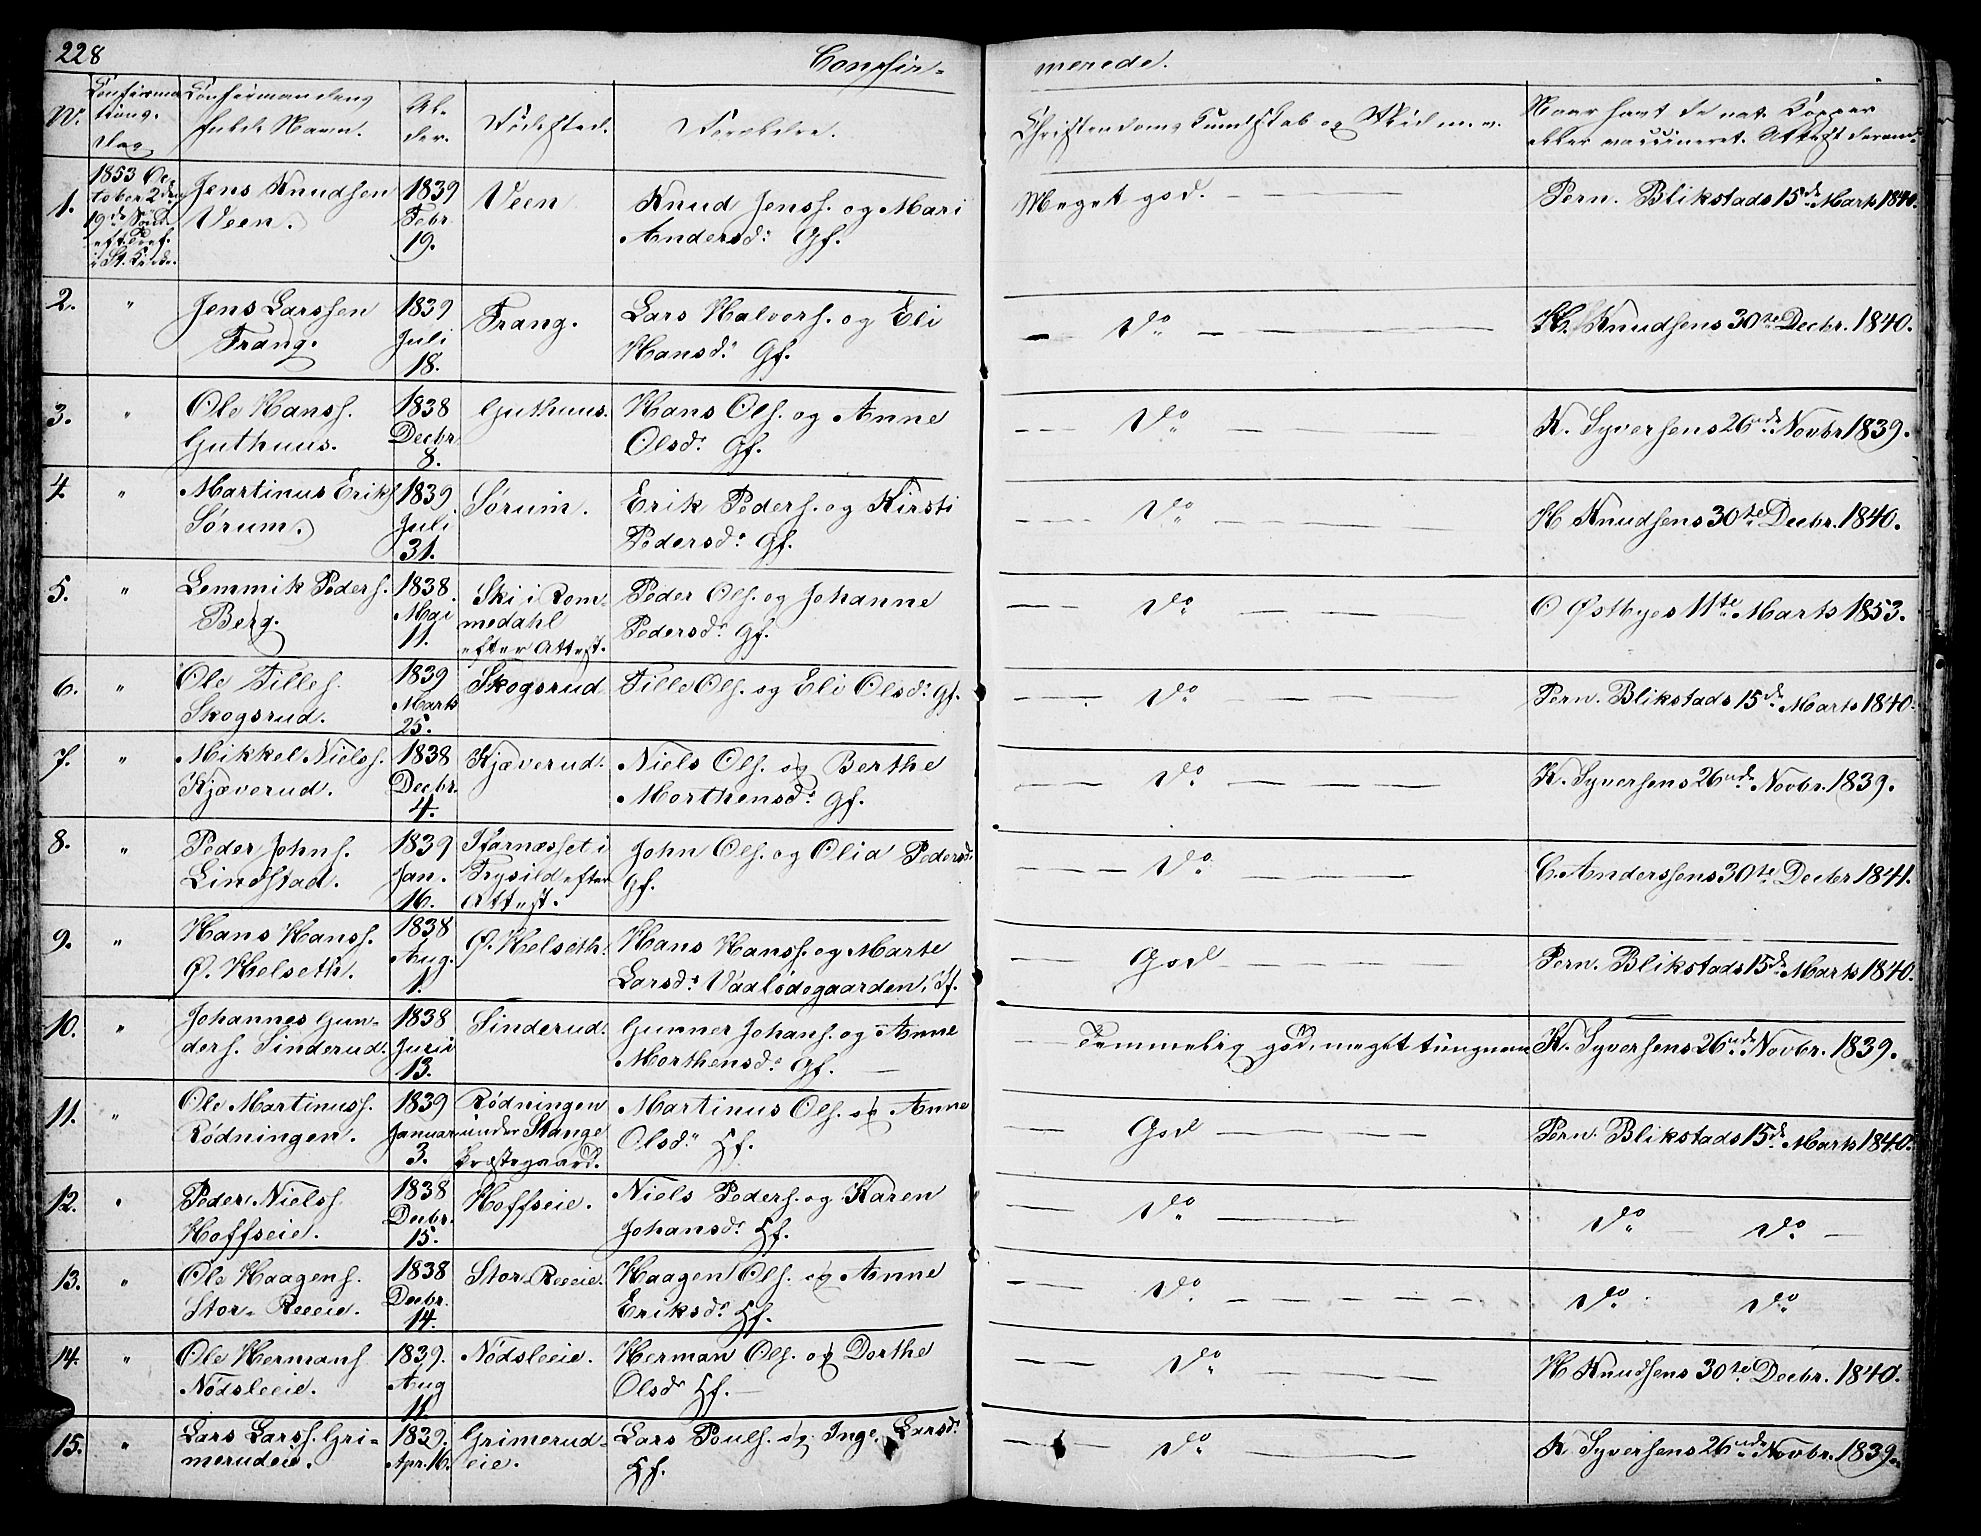 228 Confir- merede.
N. Confirma-tions-Dag Confirmandens fulde Navn. Al-der. Fødested. Forældre. Christendoms Kundskab og Flid m. v. Naar havt de nat. Kopper eller vaccineret. Attest derom.
1. 1853 October 2den 19de Sønd. eft. Tref. i St. Kirke. Jens Knudsen Veen. 1839 Febr. 19. Veen Knud Jenss. og Mari Andersd. Gf. Meget god. Pern. Blikstads 15de Marts 1840.
2. " Jens Larssen Frang. 1839 Juli 18. Frang. Lars Halvors. og Eli Hansd. Gf. Do H. Knudsens 30te Decbr. 1840.
3. " Ole Hanss. Guthuus. 1838 Decbr. 8. Guthuus. Hans Ols. og Anne Olsd. Gf. Do K. Syversens 26nde Novbr 1839.
4. " Martinus Eriks. Sørum. 1839 Juli 31. Sørum. Erik Peders. og Kirsti Pedersd. Gf. Do H Knudsens 30te Decbr. 1840.
5. " Lemmik Peders. Berg. 1838. Mai 11. Ski i Rommedahl efter Attest. Peder Ols. og Johanne Pedersd. Gf. Do O Østbyes 11te Marts 1853.
6. " Ole Tilles. Skogsrud. 1839 Marts 25. Skogsrud Tille Ols. og Eli Olsd. Gf. Do Pern. Blikstads 15de Marts 1840.
7. " Mikkel Niels. Kjæverud. 1838 Decbr. 4. Kjæverud. Niels Ols. og Berthe Morthensd. Gf. Do K. Syversens 26nde Novbr. 1839.
8. " Peder Johns. Lindstad. 1839 Jan. 16. Flarnæsset i Trysild efter Attest. John Ols. og Olia Pedersd. Gf. Do C. Anderssens 30te Decbr 1841.
9. " Hans Hanss. Ø. Helseth. 1838 Aug. 1. Ø. Helseth. Hans Hanss. og Marte Larsd. Vadlødegaarden. Gf. God Pern. Blikstads 15de Marts 1840.
10. " Johannes Gunders. Sinderud. 1838 Juni 13. Sinderud. Gunner Johans. og Anne Morthensd. Gf. Temmelig god, meget tungnem K. Syversens 26nde Novbr. 1839.
11. " Ole Martinuss. Rødningen. 1839 Januar 3. Rødningen under Stange Præstegaard. Martinus Ols. og Anne Olsd. Hf. God Pern. Blikstads 15de Marts 1840.
12. " Peder Nielss. Hoffseie. 1838 Decbr. 15. Hoffseie. Niels Peders. og Karen Johansd. Hf. Do Do Do
13. " Ole Haagens. Stor-Reeeie. 1838 Decbr. 14. Stor-Reeeie. Haagen Ols. og Anne Eriksd. Hf. Do Do Do
14. " Ole Hermans. Nødsleeie. 1839. Aug 11. Nødsleeie. Herman Ols. og Dorthe Olsd. Hf. Do H Knudsens 30te Decbr. 1840.
15. " Lars Larss. Grimerudeie. 1839. Apr. 16. Grimerudeie. Lars Pouls. og Inge. Larsd. Hf. Do K Syversens 26nde Novbr. 1839.